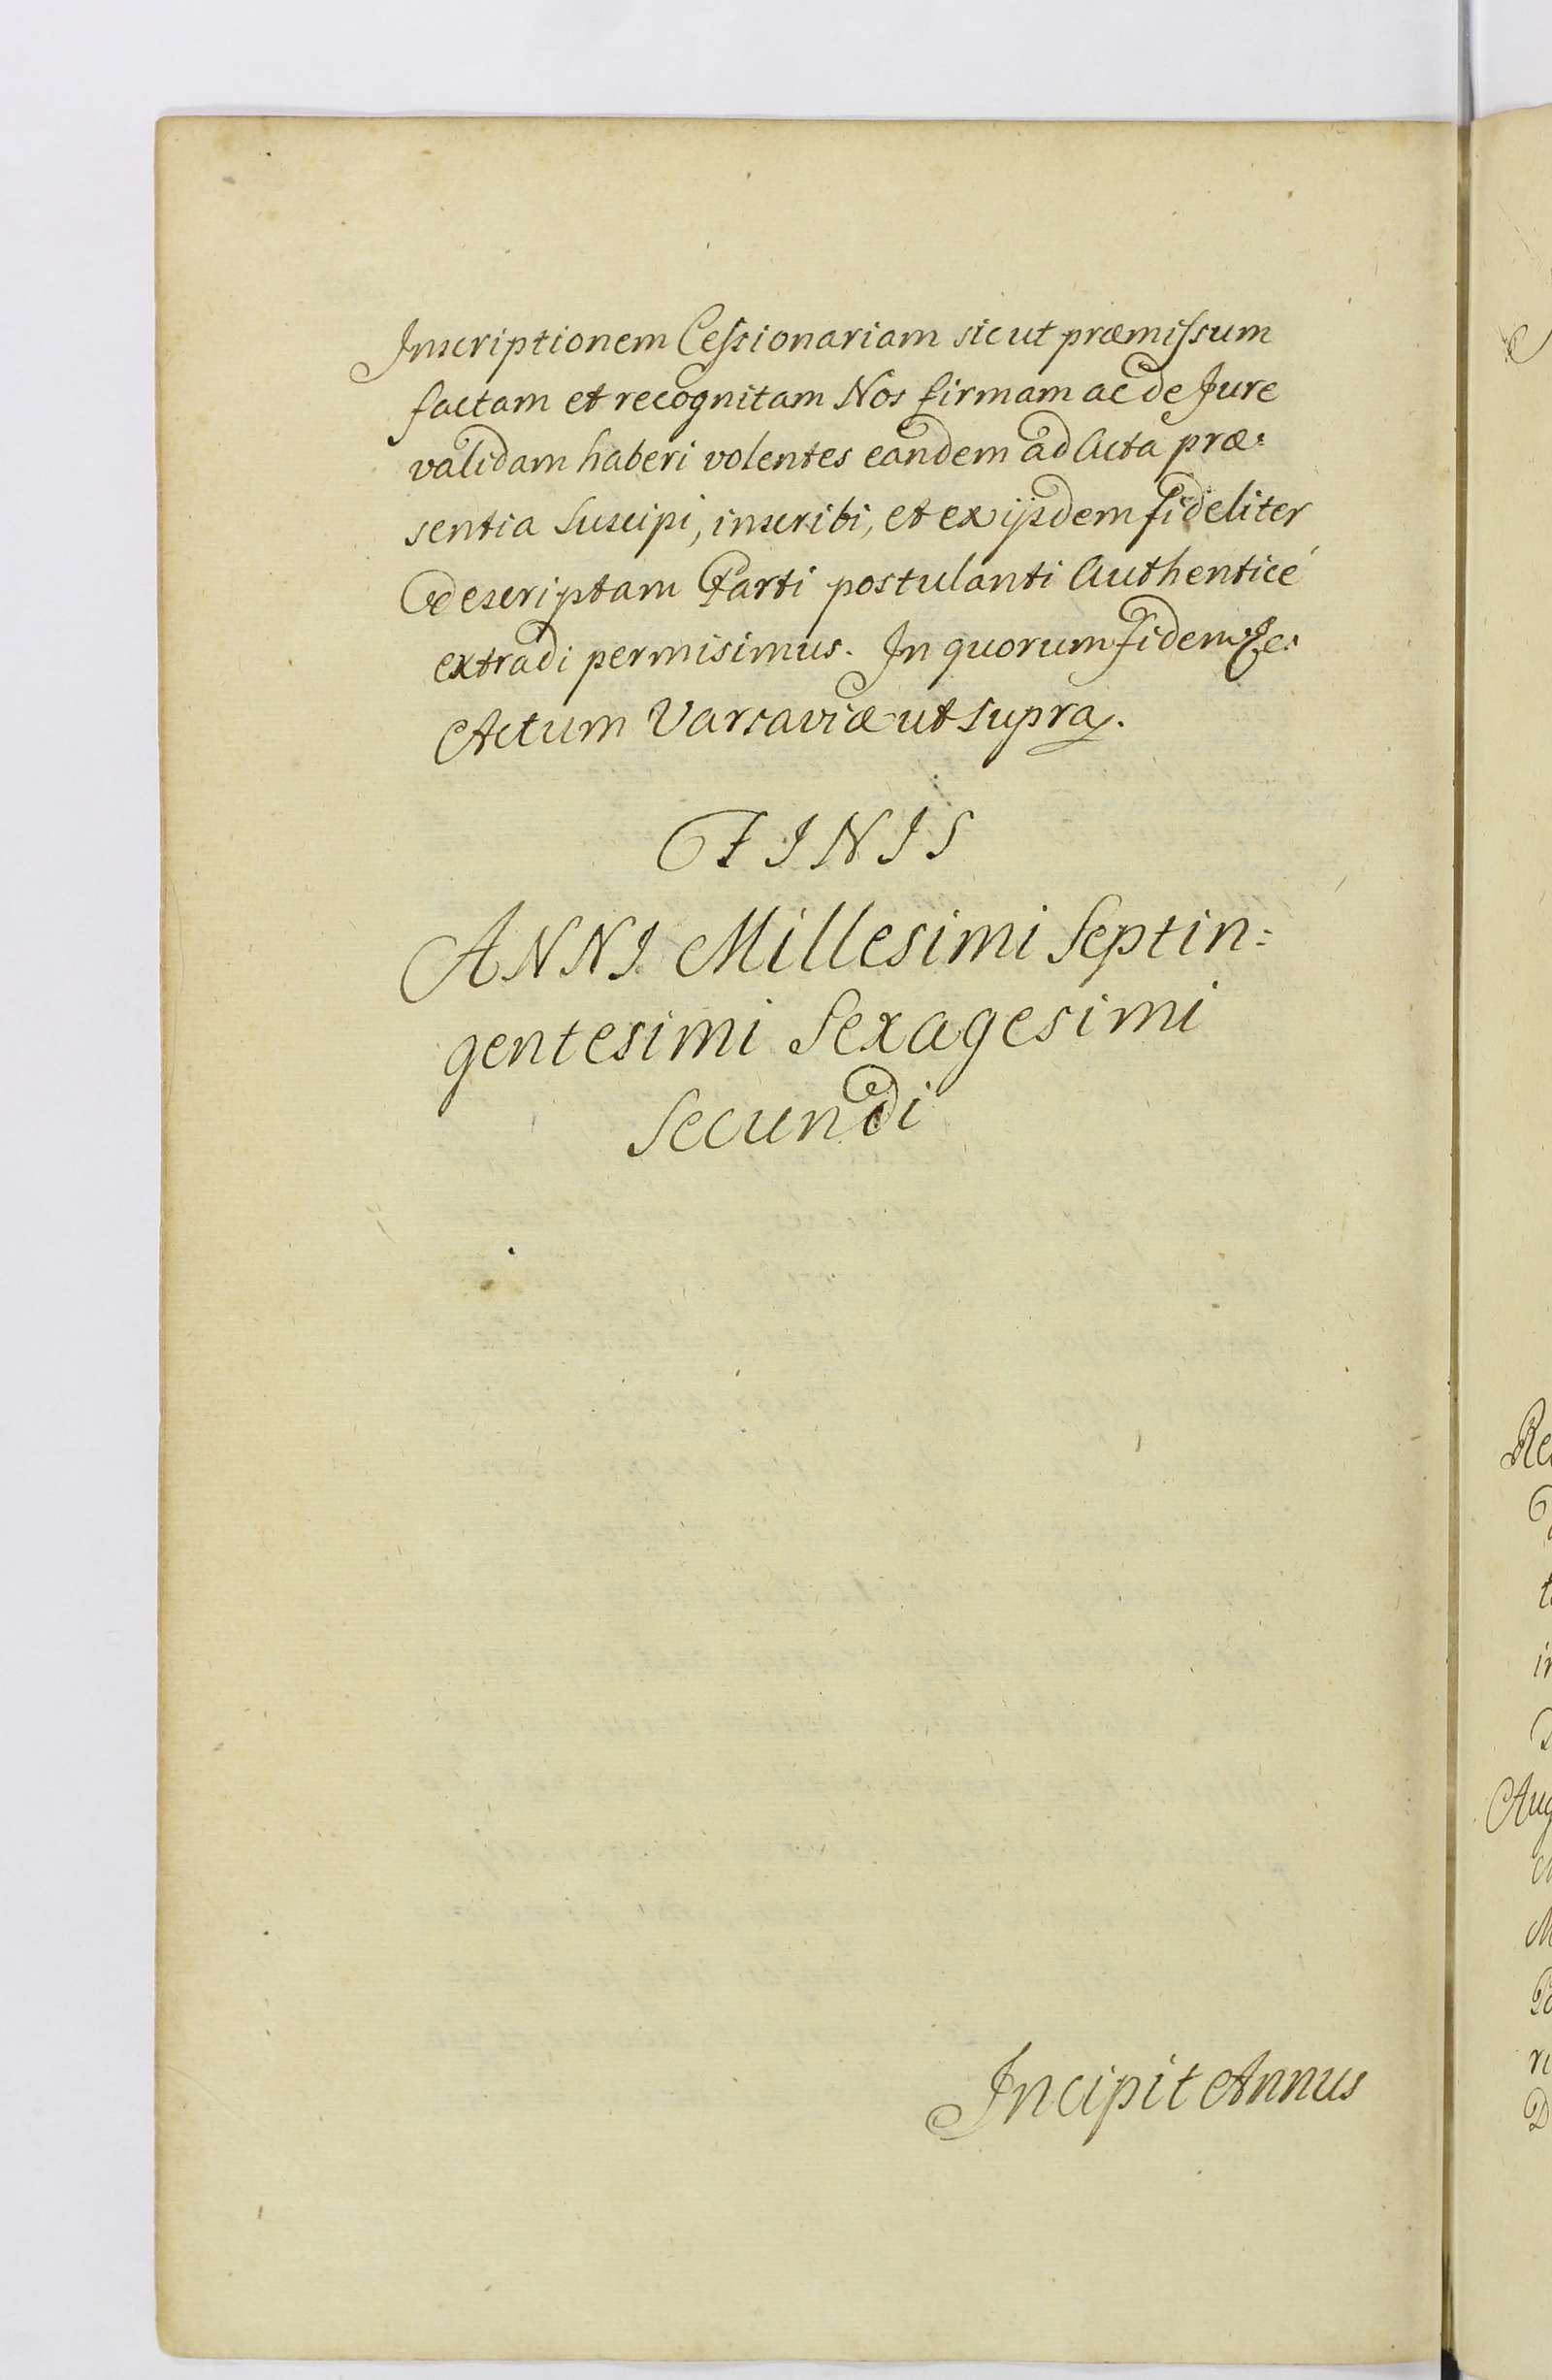 Inscriptionem Cessionariam sicut præmissum
factam et recognitam Nos firmam ac de Jure
validam haberi volentes eandem ad Acta præ:
sentia Suscipi, inscribi, et ex ijsdem fideliter
descriptam Parti postulanti Authenticé
extradi permisimus. In quorum fidem &c:
Actum Varsaviæ ut supra.
FINIS
ANNI Millesimi Septin:
gentesimi Sexagesimi
Secundi
Incipit Annus